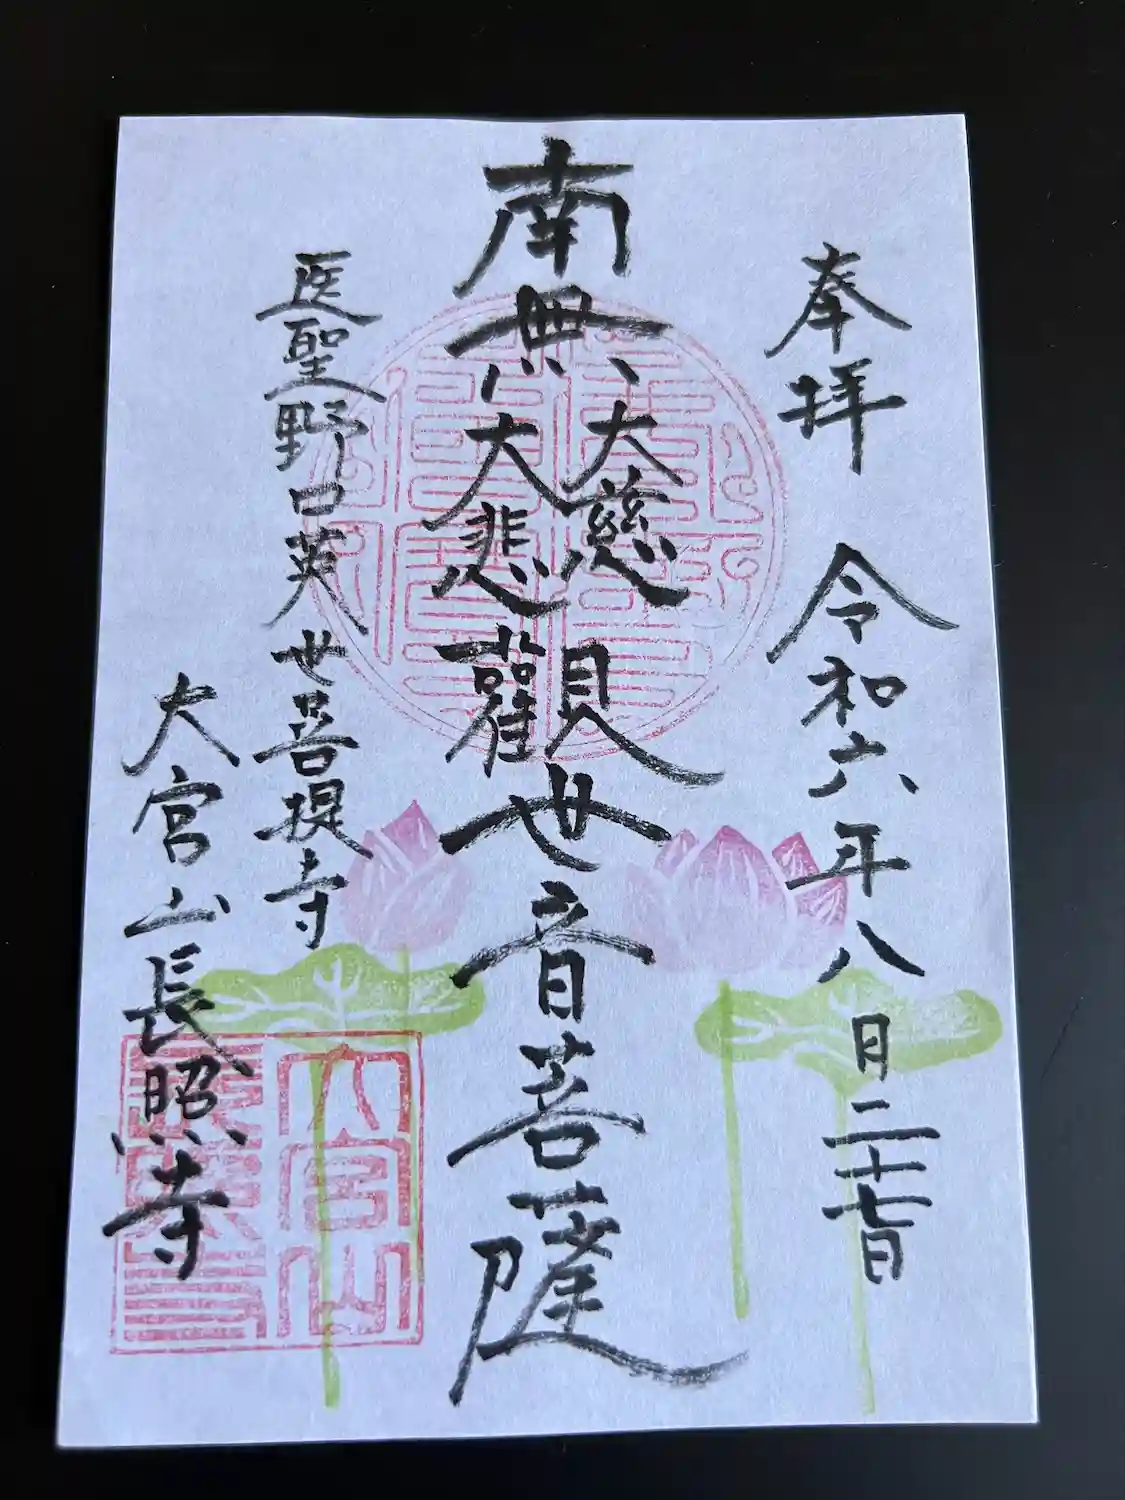 奉拝 令和六年八月二十七日
南無大慈大悲觀世音菩薩
医聖野口英世菩提寺
大宮山長照寺
大宮山
長照寺